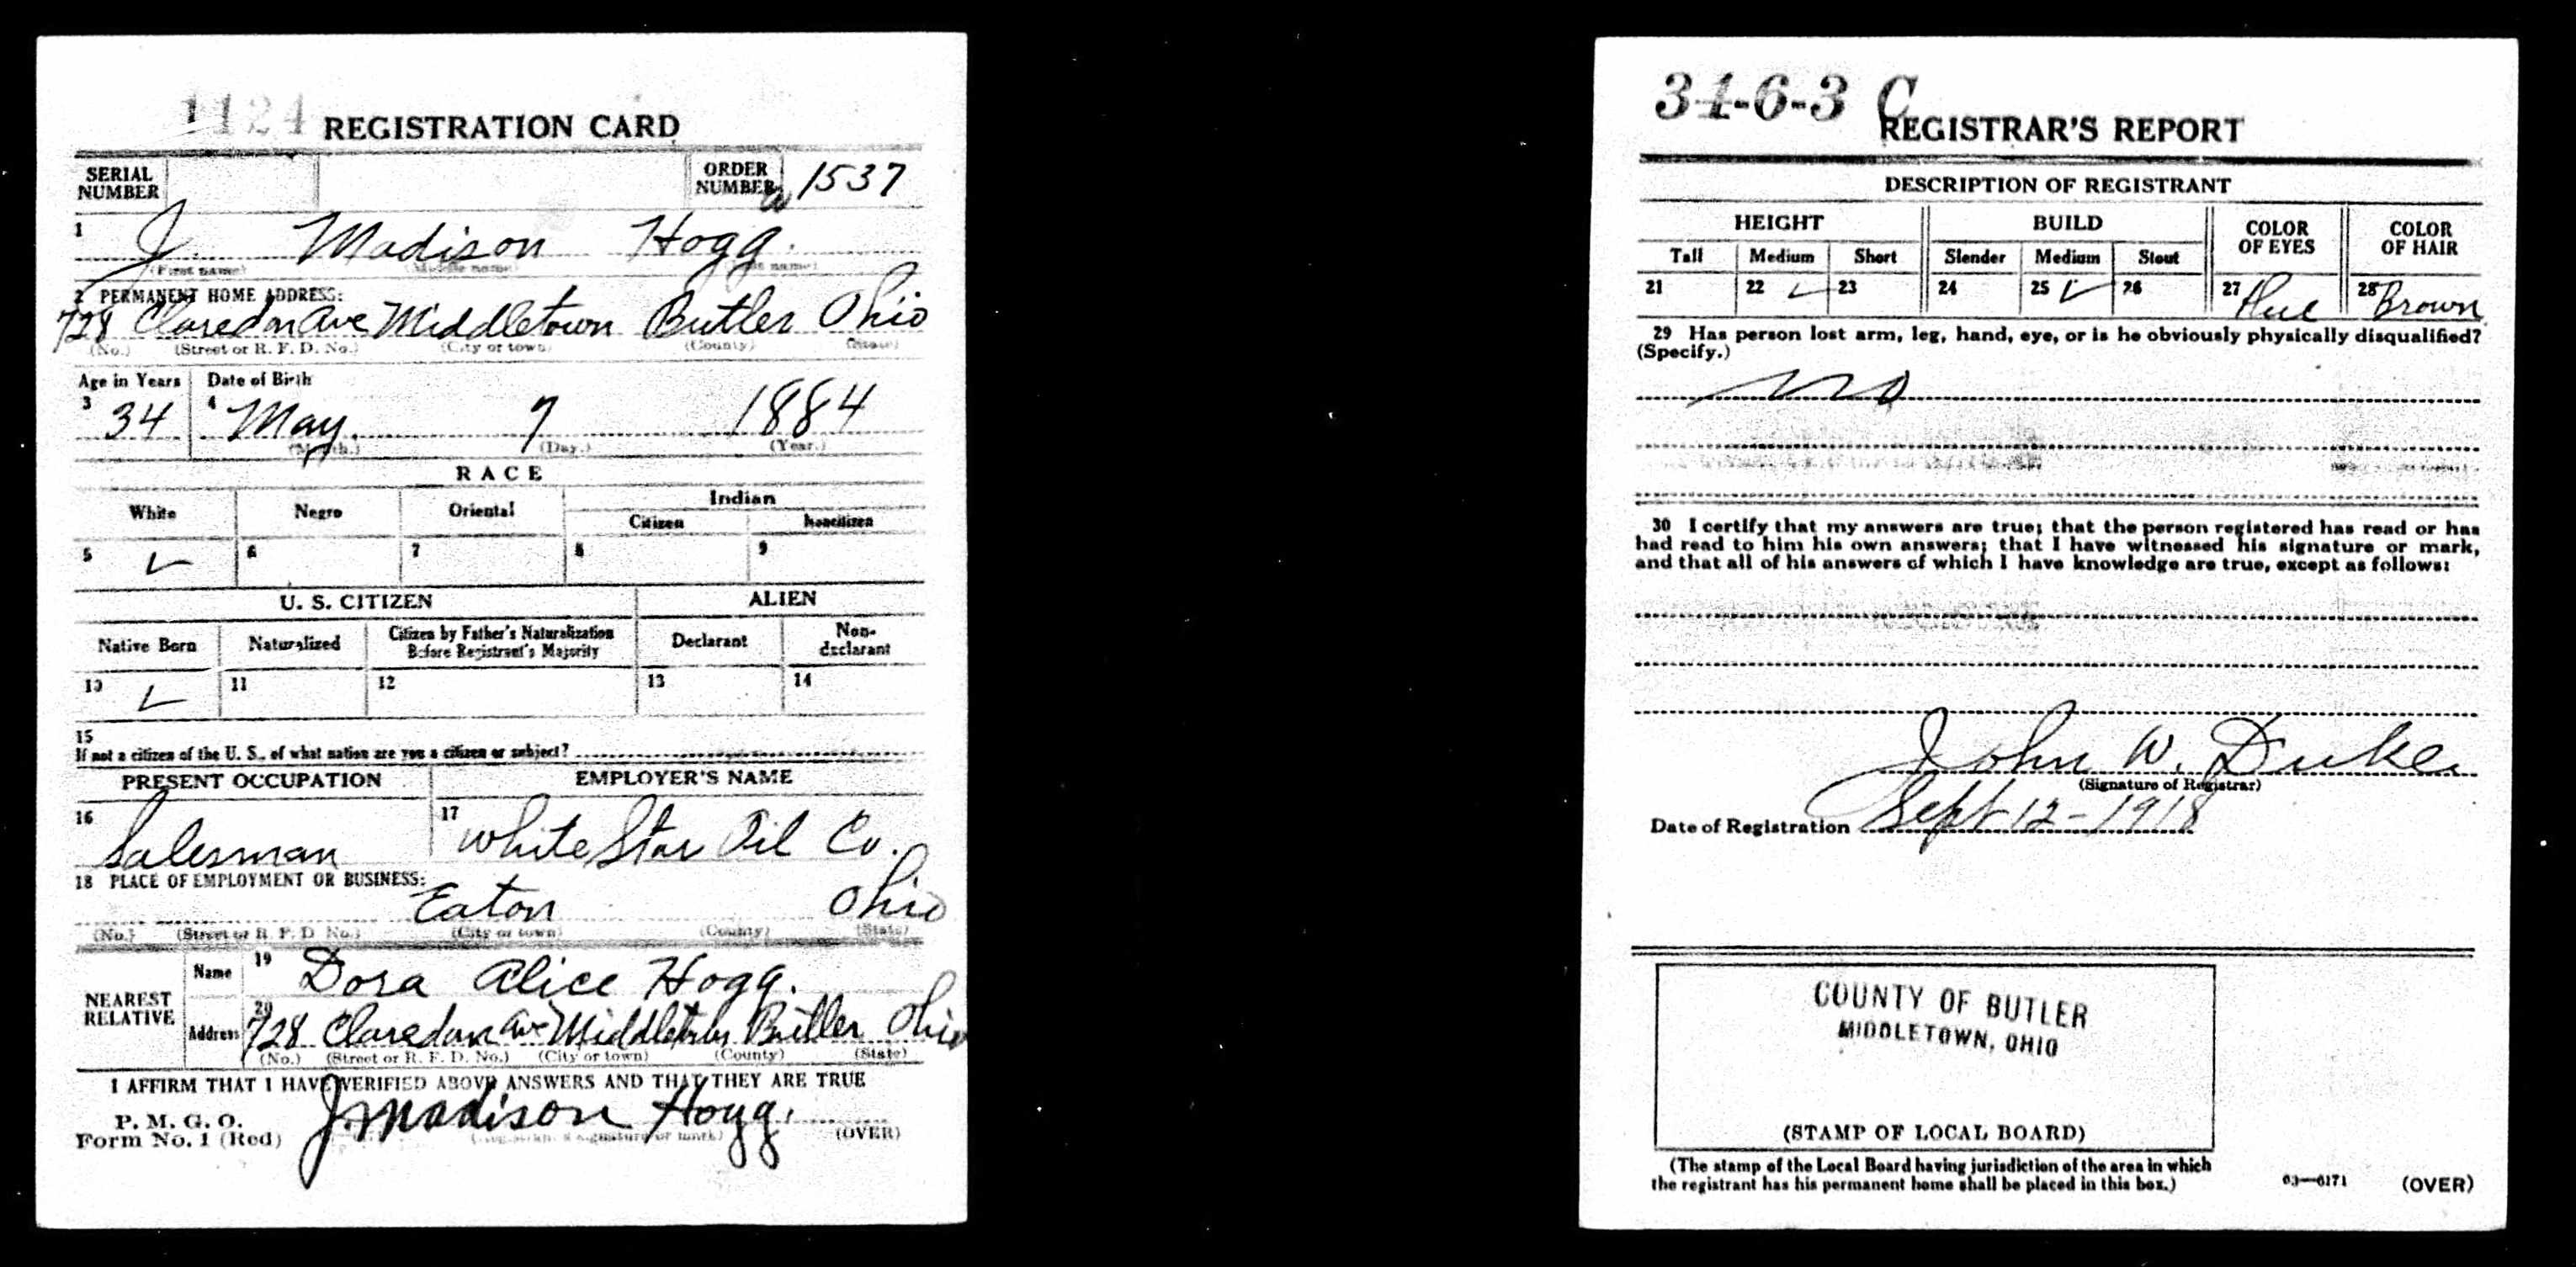 1124 REGISTRATION CARD
SERIAL NUMBER
ORDER NUMBER 1537
1 J. Madison Hogg.
(First name) (Middle name) (Last name)
2 PERMANENT HOME ADDRESS:
728 Claredon Ave Middletown Butler Ohio
(No.) (Street or R. F. D. No.) (City or town) (County) (State)
Age in Years Date of Birth
3 34 4 May. 7 1884
(Month.) (Day.) (Year.)
RACE
White Negro Oriental Indian
Citizen Noncitizen
5 ✓ 6 7 8 9
U. S. CITIZEN ALIEN
Native Born Naturalized Citizen by Father's Naturalization Before Registrant's Majority Declarant Non-declarant
10 ✓ 11 12 13 14
15
If not a citizen of the U. S., of what nation are you a citizen or subject?
PRESENT OCCUPATION EMPLOYER'S NAME
16 Salesman 17 White Star Oil Co.
18 PLACE OF EMPLOYMENT OR BUSINESS:
Eaton Ohio
(No.) (Street or R. F. D. No.) (City or town) (County) (State)
NEAREST RELATIVE
Name 19 Dora Alice Hogg.
Address 20 728 Claredon Ave Middletown Butler Ohio
(No.) (Street or R. F. D. No.) (City or town) (County) (State)
I AFFIRM THAT I HAVE VERIFIED ABOVE ANSWERS AND THAT THEY ARE TRUE
P. M. G. O.
Form No. 1 (Red) J. Madison Hogg.
(Registrant's signature or mark) (OVER)
34-6-3 C
REGISTRAR'S REPORT
DESCRIPTION OF REGISTRANT
HEIGHT BUILD COLOR OF EYES COLOR OF HAIR
Tall Medium Short Slender Medium Stout
21 22 ✓ 23 24 25 ✓ 26 27 28 Brown
29 Has person lost arm, leg, hand, eye, or is he obviously physically disqualified?
(Specify.)
no
30 I certify that my answers are true; that the person registered has read or has
had read to him his own answers; that I have witnessed his signature or mark,
and that all of his answers of which I have knowledge are true, except as follows:
John W. Duke
(Signature of Registrar)
Date of Registration Sept 12-1918
COUNTY OF BUTLER
MIDDLETOWN, OHIO
(STAMP OF LOCAL BOARD)
(The stamp of the Local Board having jurisdiction of the area in which
the registrant has his permanent home shall be placed in this box.)
63—6171 (OVER)